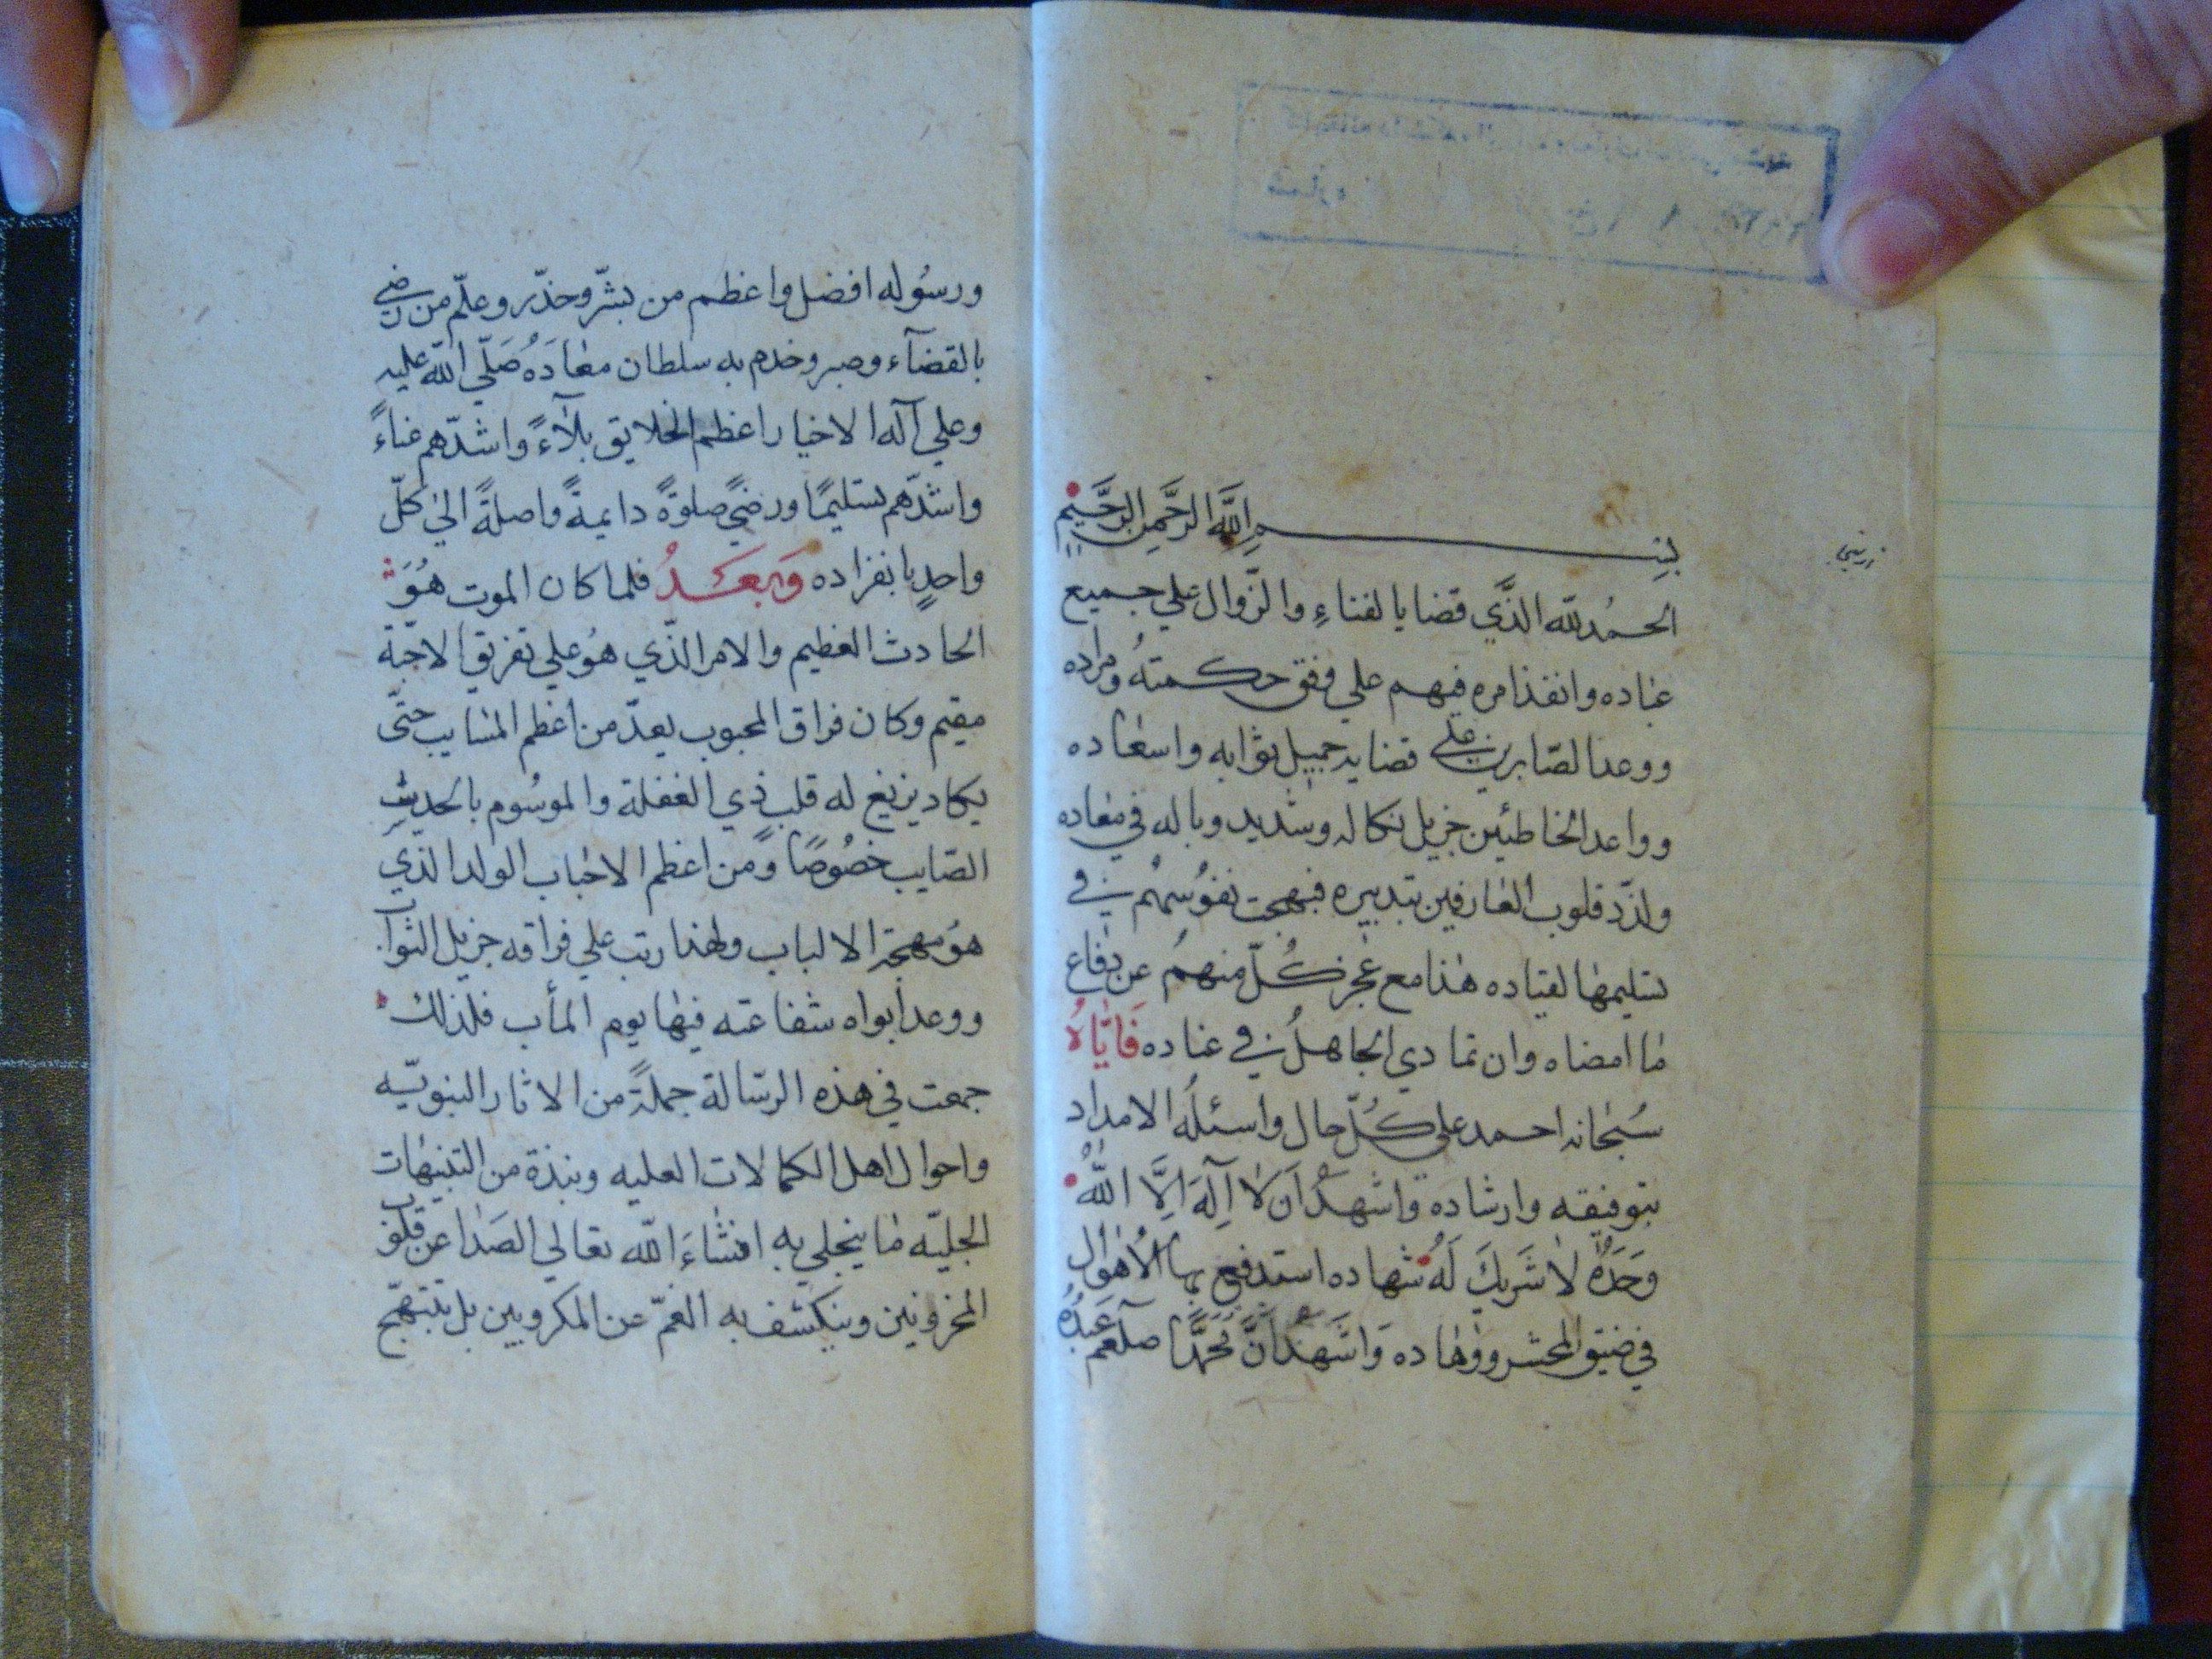 بِسْمِ اللَّهِ الرَّحْمٰنِ الرَّحِيْمِ
الحمدُ للّه الذَّي قضا بالفناءِ والزّوال علي جميع
عباده وانفذ امره فيهم علي وفق حكمتهُ ومراده
ووعد الصّابرين علي قضايه جميل ثوابه واسعاده
وواعد الخاطئين جزيل نكاله وشديد وباله في معاده
ولذّد قلوب العارفين بتدبيره فبهجت نفوُسهُم في
تسليمها لقياده هذا مع عجز كُلّ منهمُ عن دفاع
ما امضاه وان تمادي الجاهلُ في عناده فَايّاهُ
سُبحانه احمد علي كُلّ حال واسئلُه الامداد
بتوفيقه وارشاده واشهدُ اَن لا اِلَهَ اِلَّا اللّهُ
وَحَدَهُ لا شَرِيكَ لَهُ شهاده استدفع بها الُاهوال
في ضيق المحشر ووهاده وَاشهدُ اَنَّ مُحَمَّدًا صلعم عَبدُهُ
ورسُوله افضل واعظم من بشّر وحذّر وعلّم من رضي
بالقضآء وصبر وخدم به سلطان معادَهُ صَلّي اللّه عليه
وعلي آله الاخيار اعظم الخلايق بلآءً واشدّهم عناءً
واشدّهم تسليمًا ورضيً صلوةً دايمةً واصلةً الي كلّ
واحدٍ بانفراده وَبَعدُ فلما كان الموت هُوَ
الحادث العظيم والامر الذّي هوُ علي تفريق الاحبّة
مقيم وكان فراق المحبوب يعدّ من اعظم المصايب حتّي
يكاد يزيغ له قلب ذي الغفلة والموسُوم بالحديث
الصّايب خصُوصًا ومن اعظم الاحباب الولد الذي
هوُ مهجة الالباب ولهذا رتب علي فراقه جزيل الثواب
ووعد ابواه شفاعته فيها يوم المأب فلذلك
جمعت في هذه الرّسالة جملةً من الاثار النبويّه
واحوال اهل الكمالات العليه ونبذة من التنبيهات
الجليّه ما ينجلي به انشاءَ اللّه تعالي الصَدا عن قلوب
المخزونين وينكشف به الغمّ عن المكروبين بل يبتهج